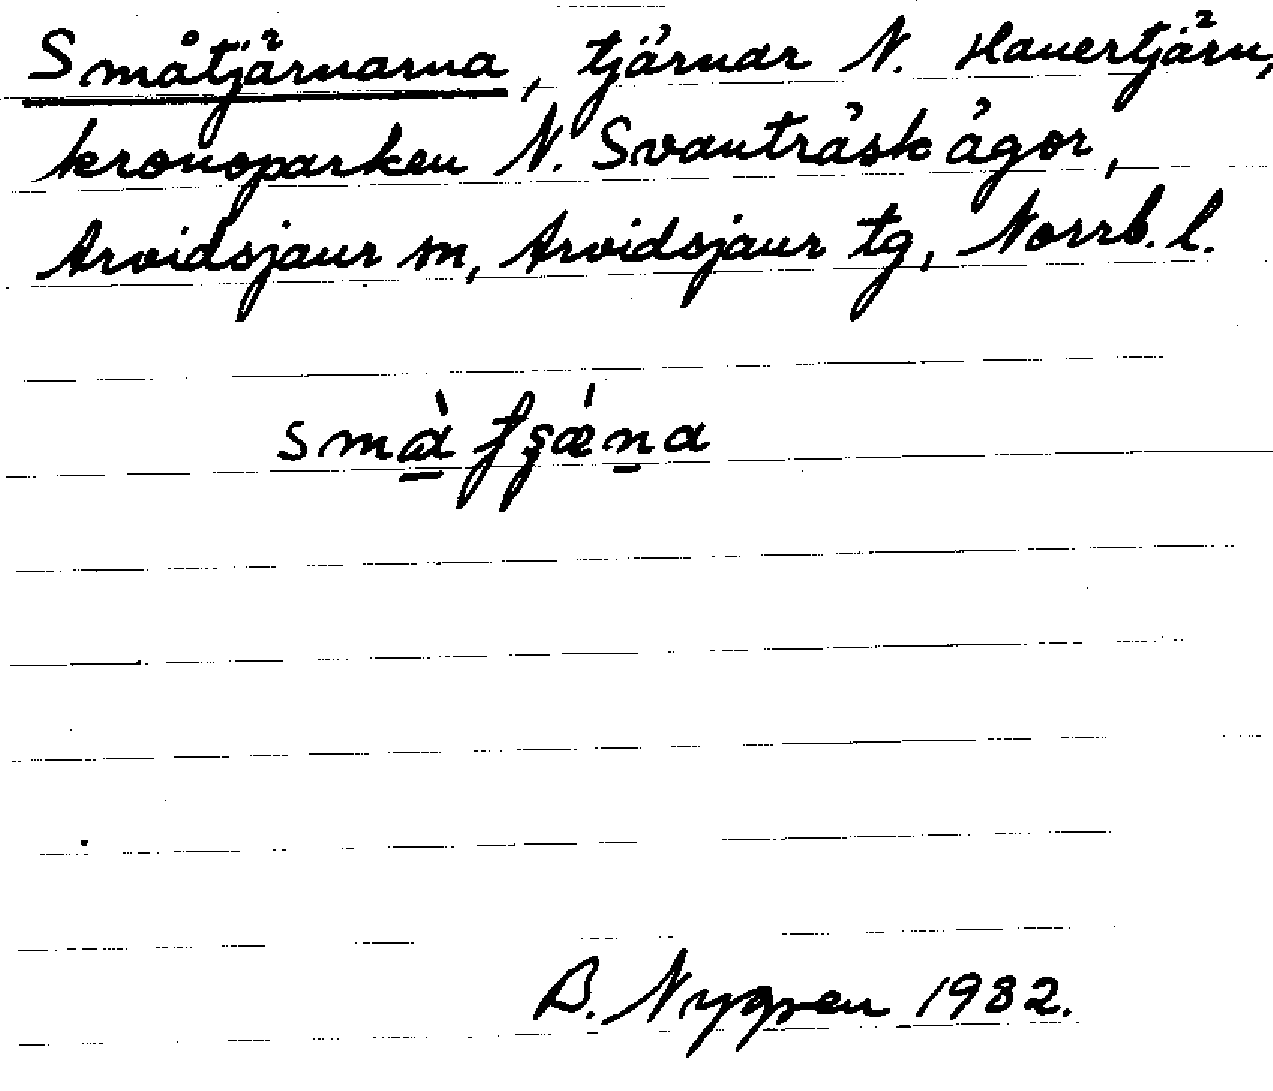 Småtjärnarna, tjärnar N. Hauertjärn,
kronoparken N. Svanträskågor,
Arvidsjaur sn, Arvidsjaur tg, Norrb. l.
B. Nygren 1932.